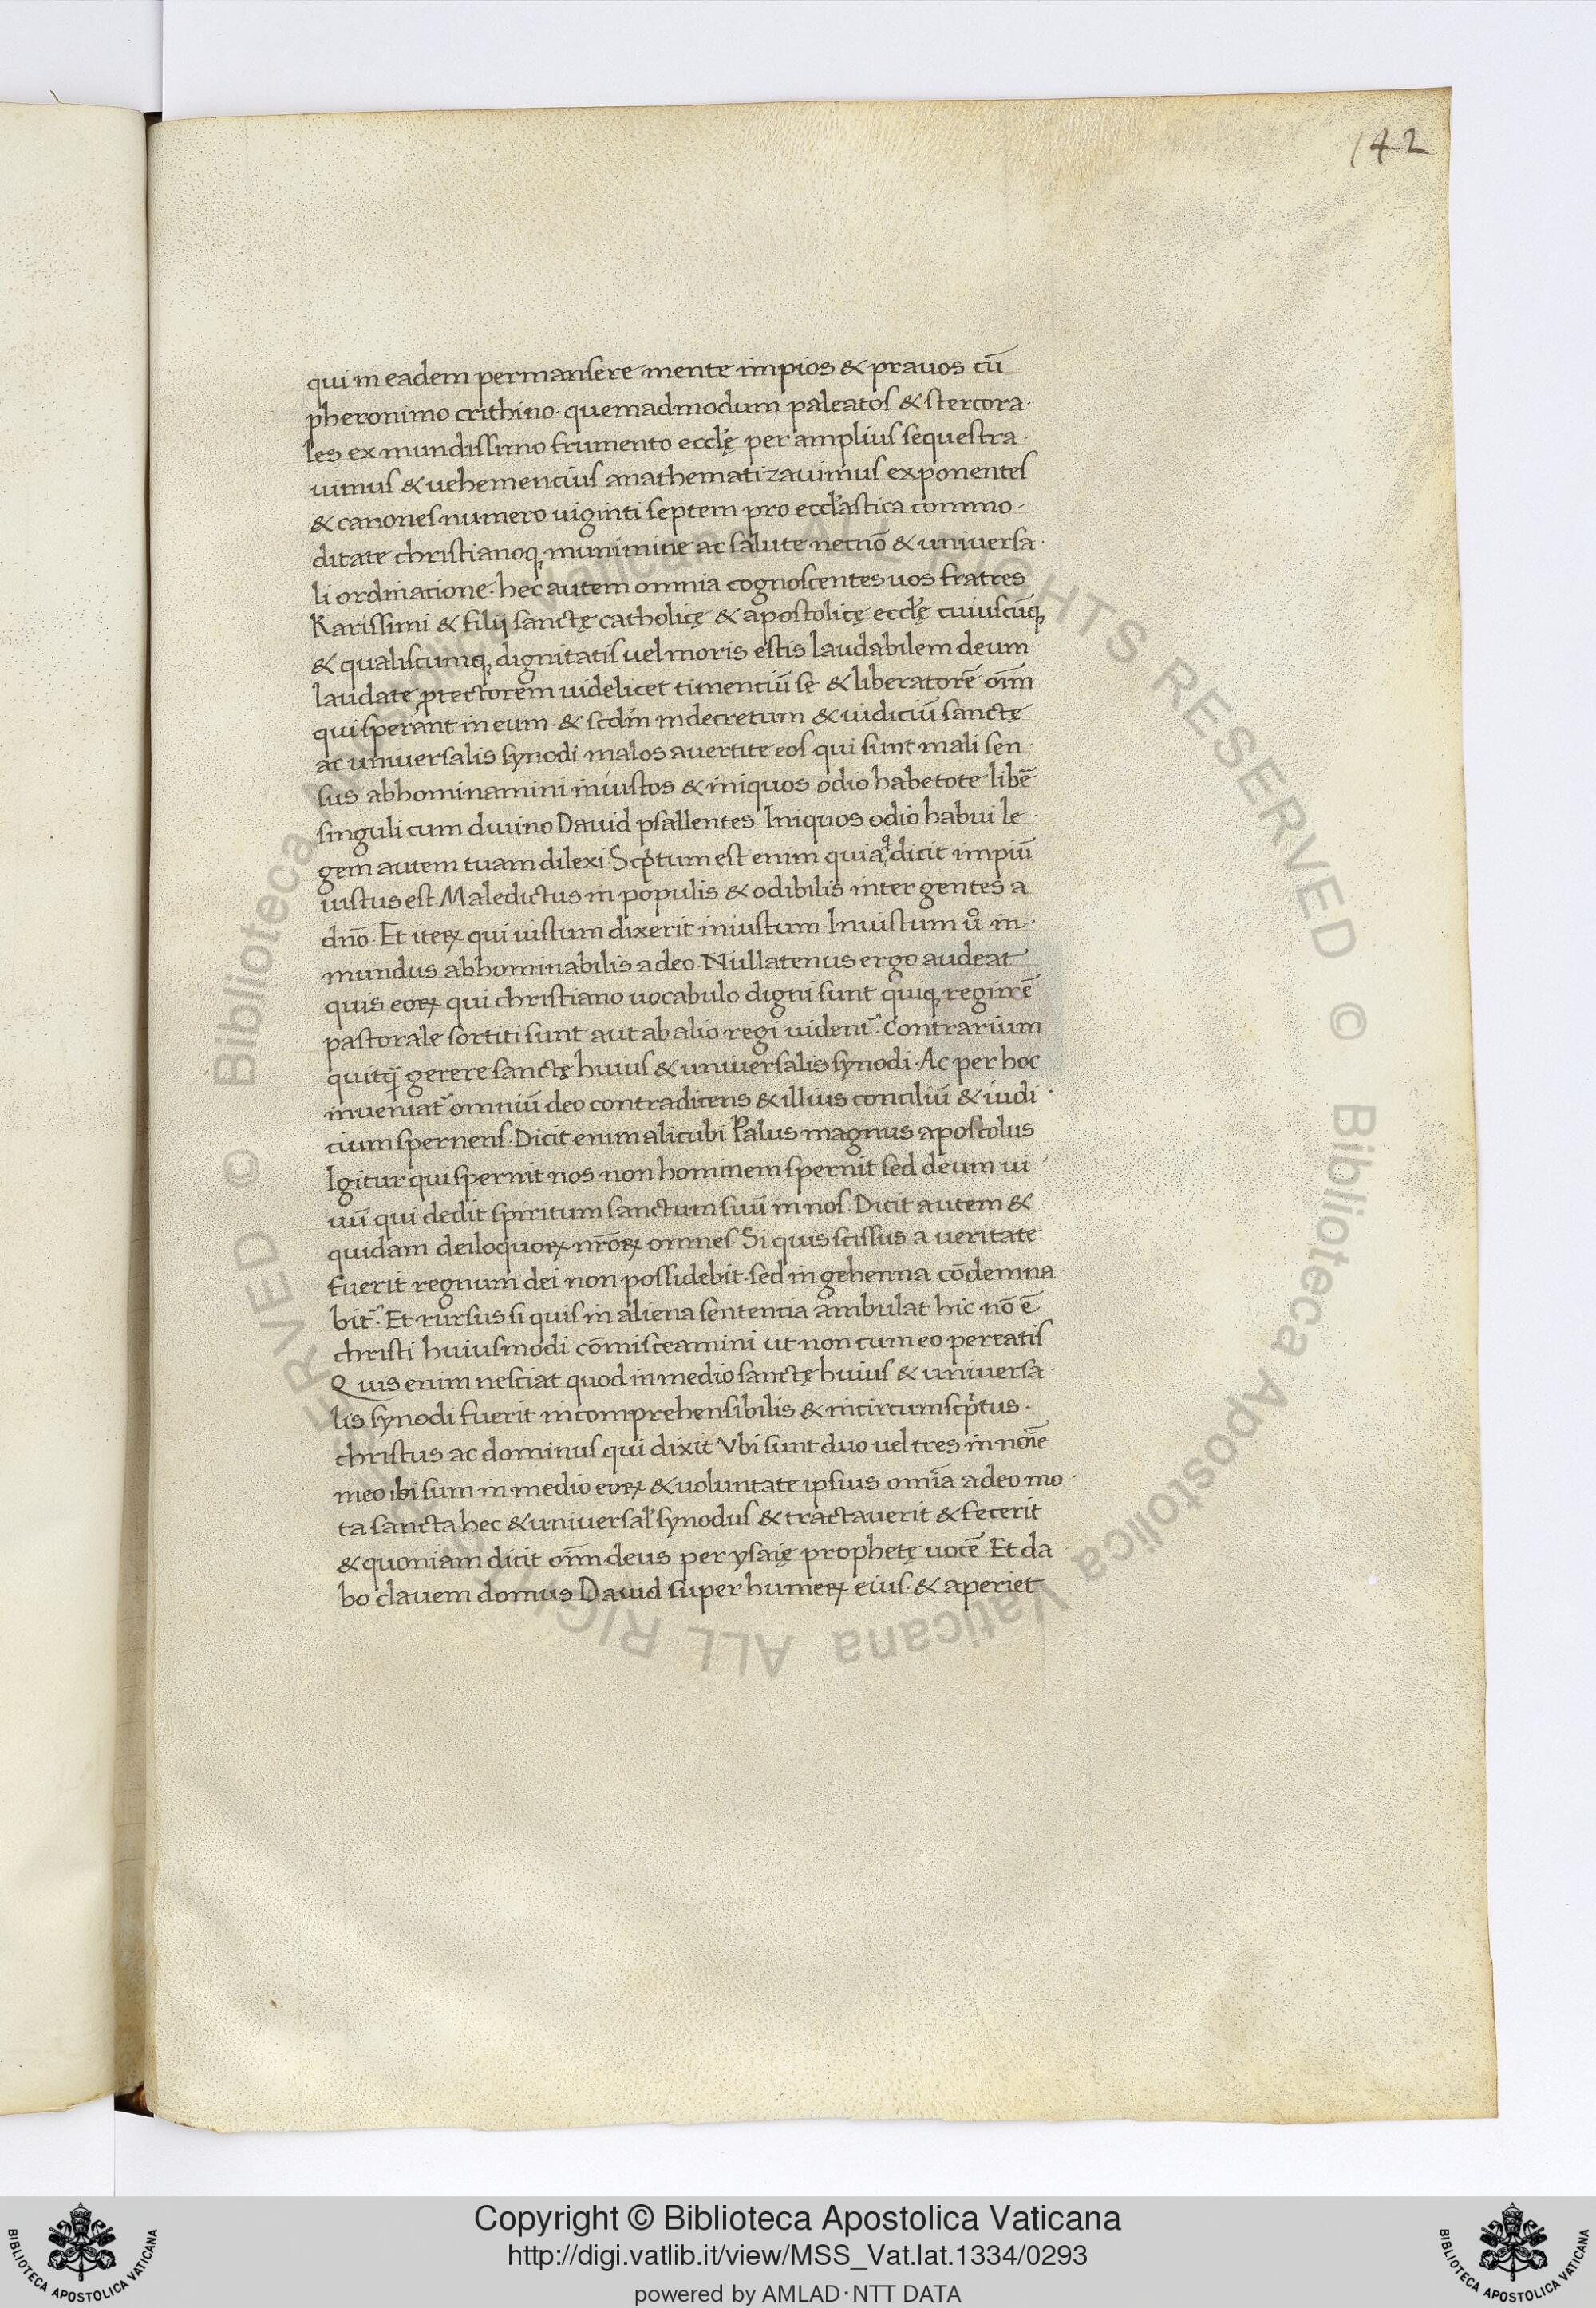 142
qui in eadem permansere mente impios & prauos cū
pheronimo crithino· quemadmodum paleatos & stercora·
les ex mundissimo frumento ecclę per amplius sequestra·
uimus & uehementius anathematizauimus exponentes
& canones numero uiginti septem pro ecclastica commo·
ditate christianoꝝ munimine ac salute necnō & uniuersa·
li ordinatione· hec autem omnia cognoscentes uos fratres
Karissimi & filij sanctę catholicę & apostolicę ecclę cuiuscūqꝫ
& qualiscumqꝫ dignitatis uel moris estis laudabilem deum
laudate ꝓtectorem uidelicet timentiū se & liberatorē om̄
qui sperant in eum· & scdm in decretum & iudiciū sanctę
ac uniuersalis synodi malos auertite eos qui sunt mali sen·
sus abhominamini iniustos & iniquos odio habetote libē
singuli cum diuino Dauid psallentes· Iniquos odio habui le·
gem autem tuam dilexi· Scptum est enim quia q̇ dicit impiū
iustus est· Maledictus in populis & odibilis inter gentes a
dnō· Et iteꝝ qui iustum dixerit iniustum· Iniustum u̇o in·
mundus abhominabilis a deo· Nullatenus ergo audeat
quis eoꝝ qui christiano uocabulo digni sunt quiqꝫ regimē
pastorale sortiti sunt aut ab alio regi uident᷑· Contrarium
quitq̄ gerere sanctę huius & uniuersalis synodi· Ac per hoc
inueniat᷑ omniū deo contradicens & illius conciliū & iudi·
cium spernens· Dicit enim alicubi Palus magnus apostolus
Igitur qui spernit nos non hominem spernit sed deum ui
uū qui dedit spiritum sanctum suū in nos· Dicit autem &
quidam deiloquoꝝ nr̄oꝝ omnes· Si quis scissus a ueritate
fuerit regnum dei non possidebit· sed in gehenna cōdemna
bit᷑· Et rursus si quis in aliena sententia ambulat hic nō ē
christi huiusmodi cōmisceamini ut non cum eo pereatis
Quis enim nesciat quod in medio sanctę huius & uniuersa·
lis synodi fuerit incomprehensibilis & incircumscptus·
christus ac dominus qui dixit Vbi sunt duo uel tres in noīe
meo ibi sum in medio eoꝝ & uoluntate ipsius omīa a deo mo·
ta sancta hec & uniuersal synodus & tractauerit & fecerit
& quoniam dicit om̄ deus per ysaię prophetę uocē· Et da
bo clauem domus Dauid super humeꝝ eius· & aperiet
Copyright © Biblioteca Apostolica Vaticana
http://digi.vatlib.it/view/MSS_Vat.lat.1334/0293
powered by AMLAD·NTT DATA
BIBLIOTECA APOSTOLICA VATICANA
BIBLIOTECA APOSTOLICA VATICANA